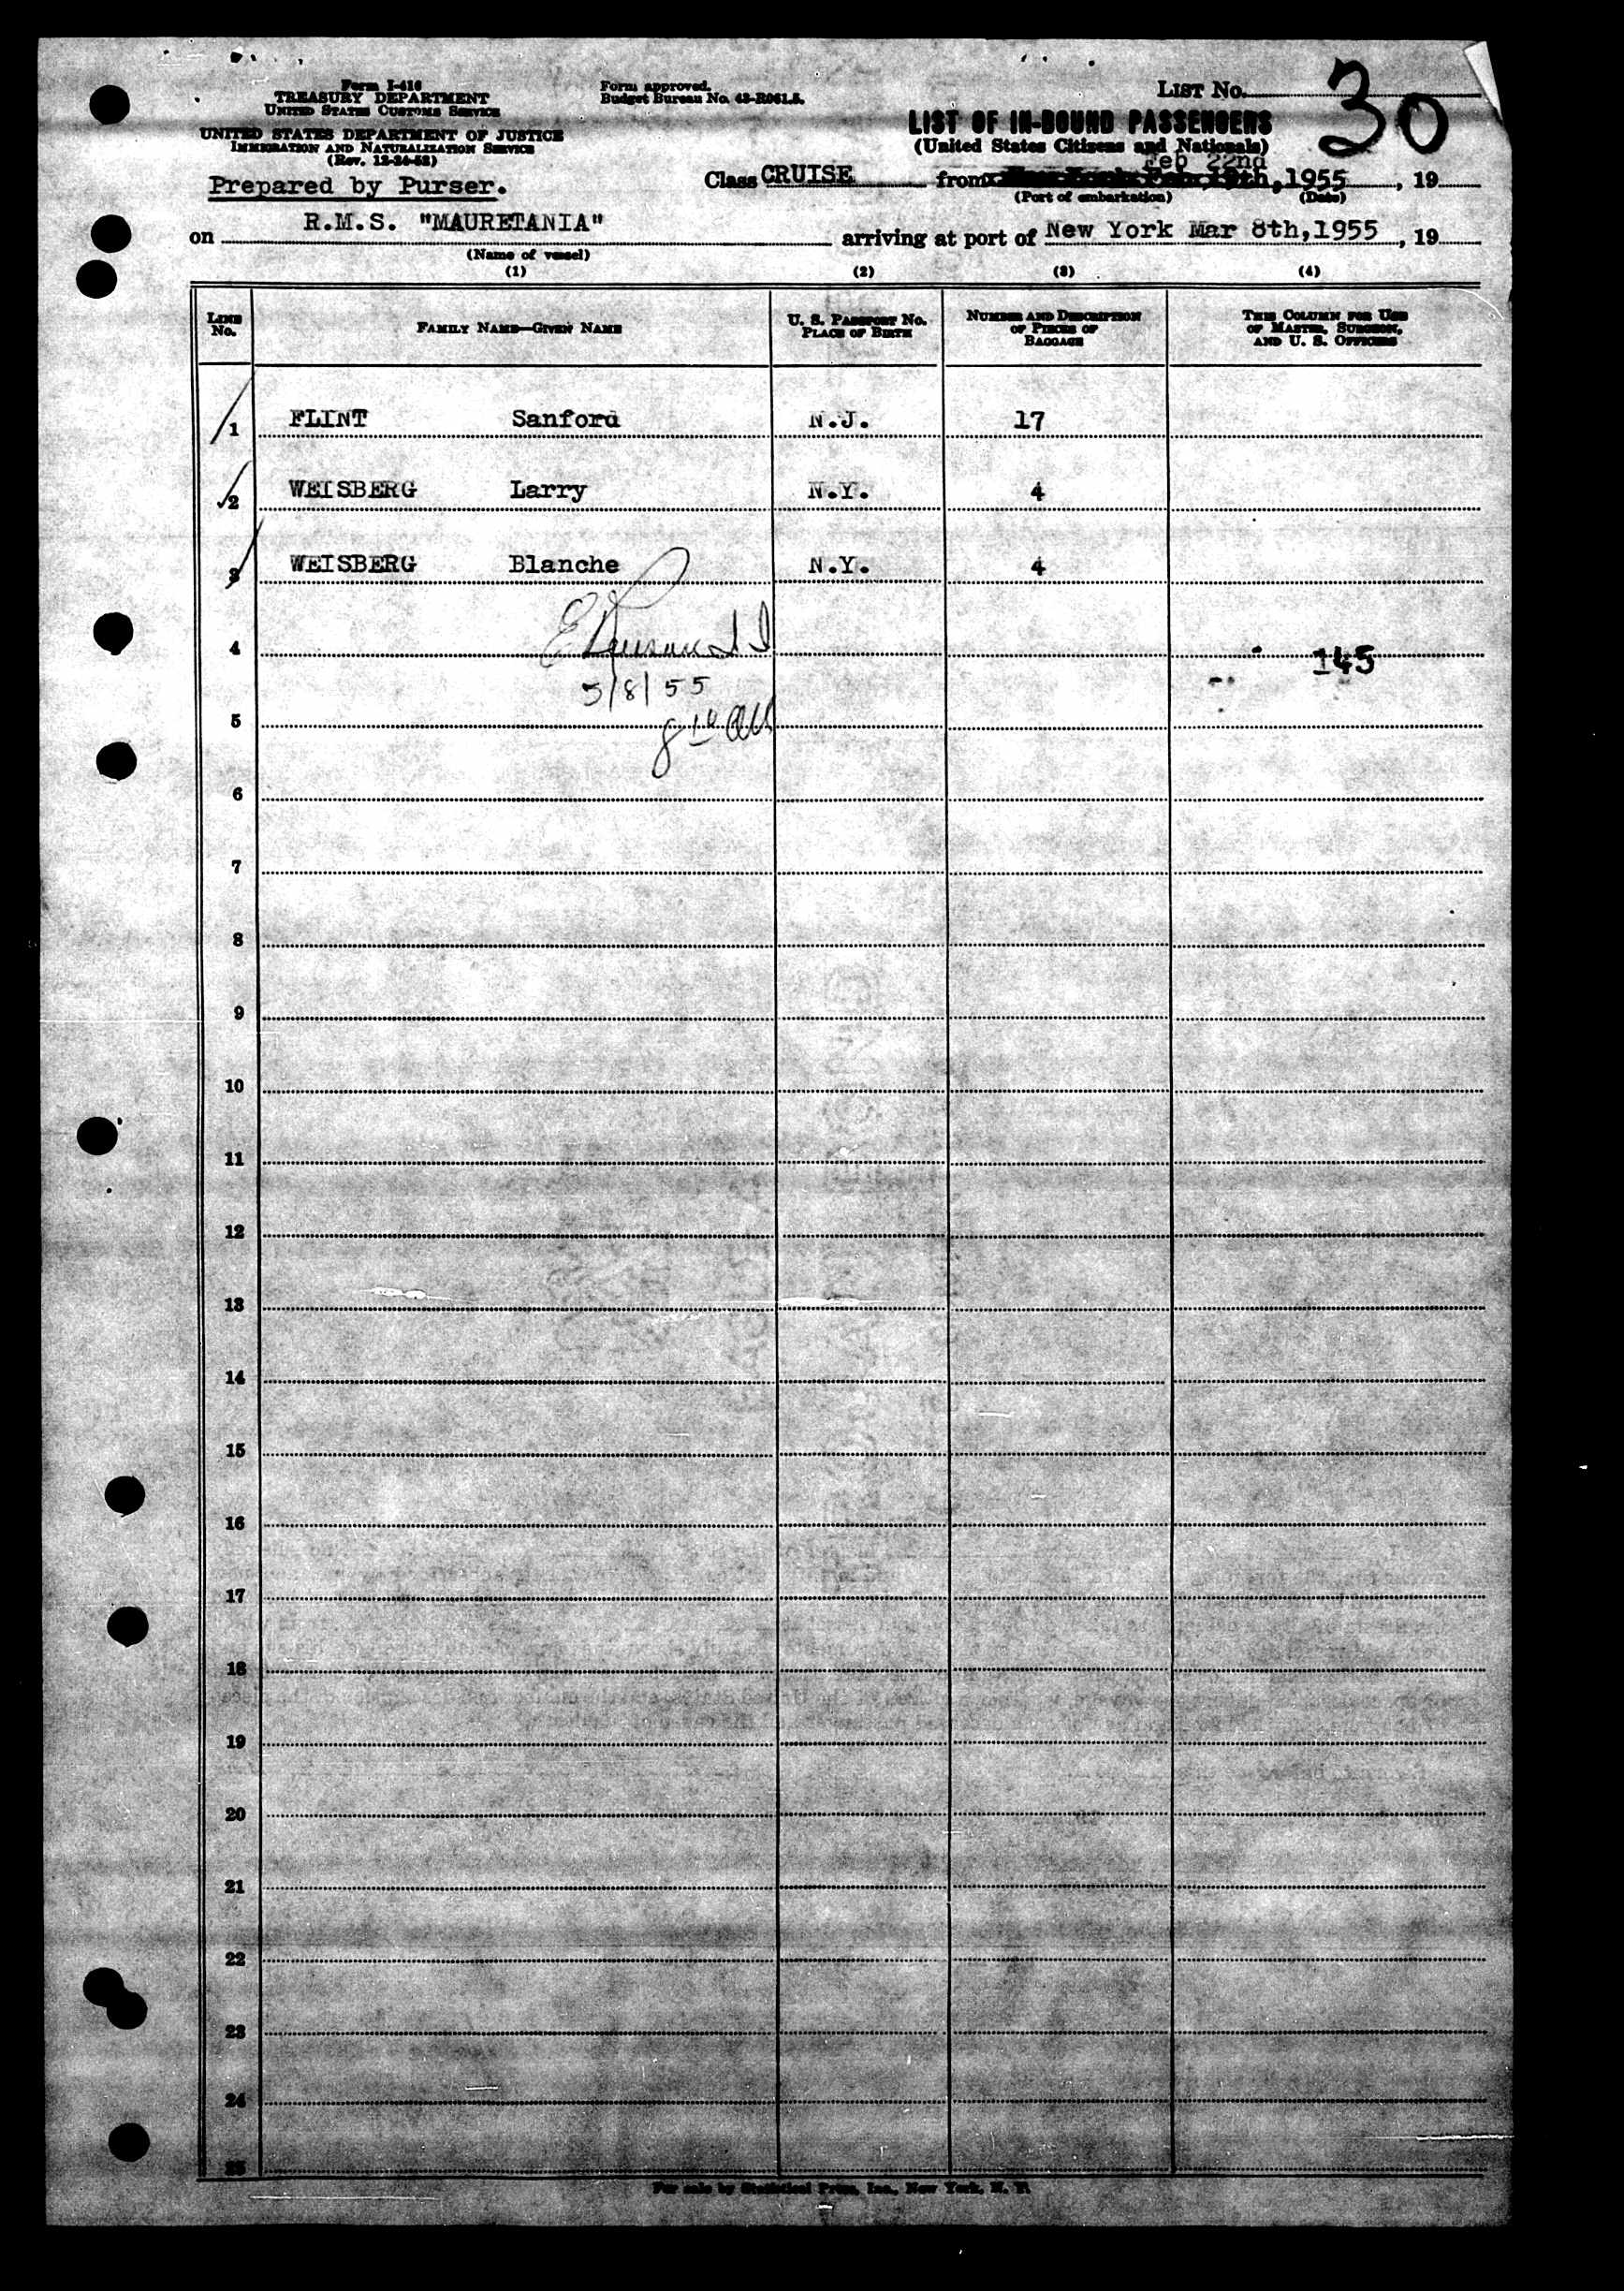 Form I-416
TREASURY DEPARTMENT
UNITED STATES CUSTOMS SERVICE
UNITED STATES DEPARTMENT OF JUSTICE
IMMIGRATION AND NATURALIZATION SERVICE
(Rev. 12-24-52)
Prepared by Purser.
Form approved.
Budget Bureau No. 43-R061.5.
LIST No. 30
LIST OF IN-BOUND PASSENGERS
(United States Citizens and Nationals)
Feb 22nd
Class CRUISE from New York Feb 18th, 1955, 19
(Port of embarkation) (Date)
on R.M.S. "MAURETANIA" arriving at port of New York Mar 8th,1955, 19
(Name of vessel)
(1) (2) (3) (4)
LINE No. FAMILY NAME—GIVEN NAME U. S. PASSPORT No. PLACE OF BIRTH NUMBER AND DESCRIPTION OF PIECES OF BAGGAGE THIS COLUMN FOR USE OF MASTER, SURGEON, AND U. S. OFFICERS
1 FLINT Sanford N.J. 17
2 WEISBERG Larry N.Y. 4
3 WEISBERG Blanche N.Y. 4
4 145
3/8/55
5
6
7
8
9
10
11
12
13
14
15
16
17
18
19
20
21
22
23
24
25
For sale by Statistical Press, Inc., New York, N. Y.